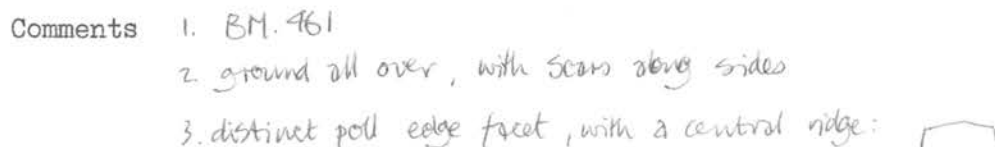 Comments 1. BM.461
2. ground all over, with scars along sides
3. distinct poll edge facet, with a central ridge: